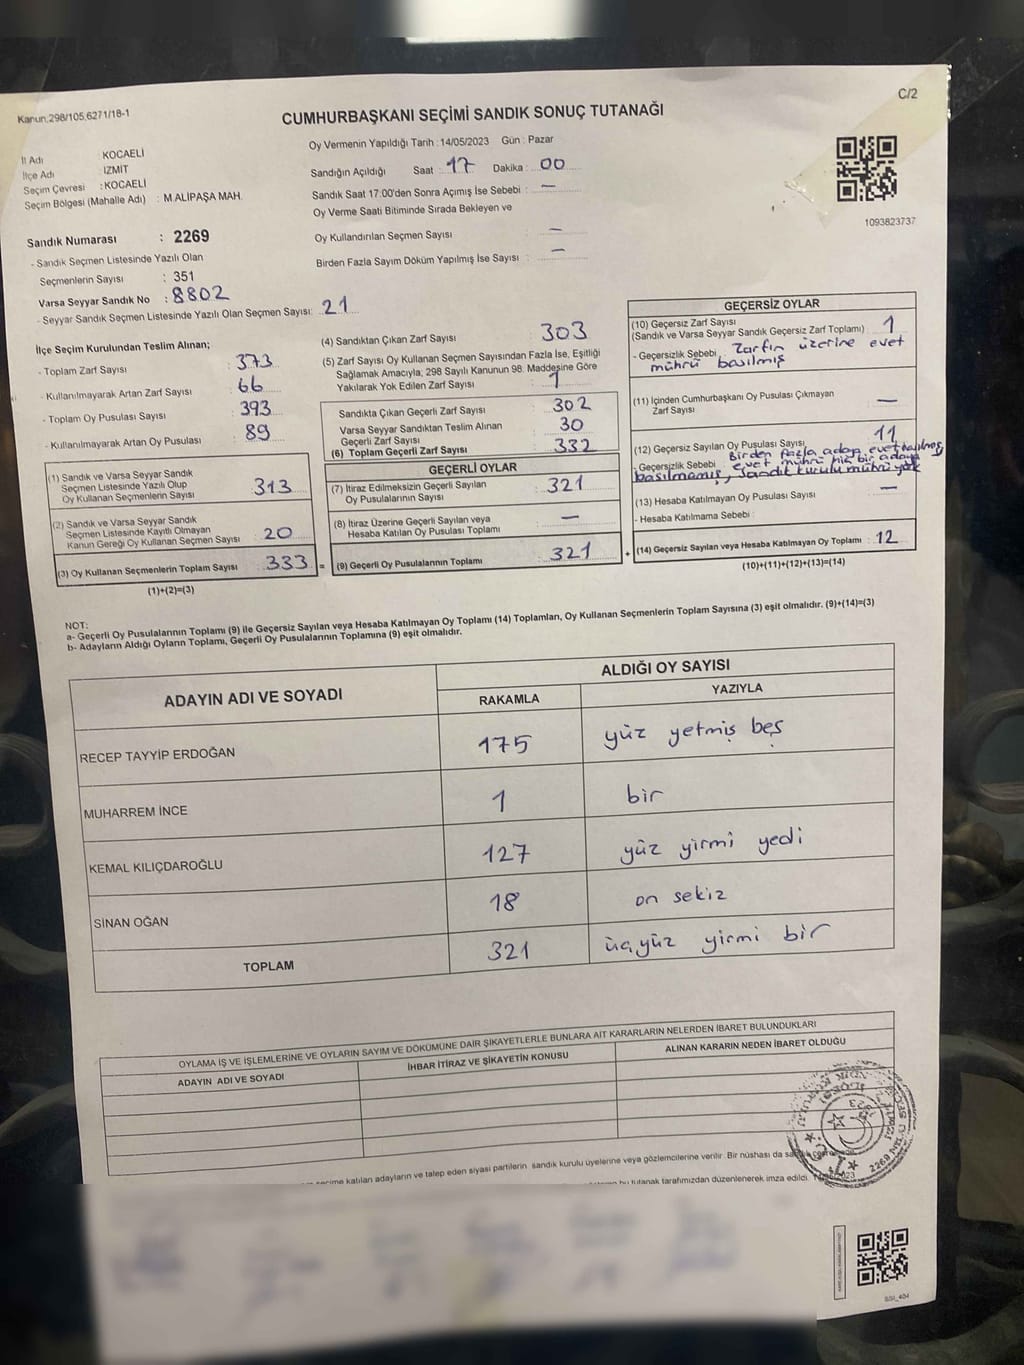 Kanun,298/105,6271/18-1
C/2
CUMHURBAŞKANI SEÇİMİ SANDIK SONUÇ TUTANAĞI
Oy Vermenin Yapıldığı Tarih : 14/05/2023 Gün : Pazar
İl Adı : KOCAELİ
İlçe Adı : İZMİT
Seçim Çevresi : KOCAELİ
Seçim Bölgesi (Mahalle Adı) : M.ALİPAŞA MAH.
Sandığın Açıldığı Saat : 17 Dakika : 00
Sandık Saat 17:00'den Sonra Açımış İse Sebebi : —
Oy Verme Saati Bitiminde Sırada Bekleyen ve
Oy Kullandırılan Seçmen Sayısı : —
Birden Fazla Sayım Döküm Yapılmış İse Sayısı : —
1093823737
Sandık Numarası : 2269
- Sandık Seçmen Listesinde Yazılı Olan
Seçmenlerin Sayısı : 351
Varsa Seyyar Sandık No : 8802
- Seyyar Sandık Seçmen Listesinde Yazılı Olan Seçmen Sayısı: 21
İlçe Seçim Kurulundan Teslim Alınan;
- Toplam Zarf Sayısı : 373
- Kullanılmayarak Artan Zarf Sayısı : 66
- Toplam Oy Pusulası Sayısı : 393
- Kullanılmayarak Artan Oy Pusulası : 89
(1) Sandık ve Varsa Seyyar Sandık
Seçmen Listesinde Yazılı Olup
Oy Kullanan Seçmenlerin Sayısı : 313
(2) Sandık ve Varsa Seyyar Sandık
Seçmen Listesinde Kayıtlı Olmayan
Kanun Gereği Oy Kullanan Seçmen Sayısı : 20
(3) Oy Kullanan Seçmenlerin Toplam Sayısı : 333 =
(1)+(2)=(3)
(4) Sandıktan Çıkan Zarf Sayısı : 303
(5) Zarf Sayısı Oy Kullanan Seçmen Sayısından Fazla İse, Eşitliği
Sağlamak Amacıyla, 298 Sayılı Kanunun 98. Maddesine Göre
Yakılarak Yok Edilen Zarf Sayısı : 1
Sandıkta Çıkan Geçerli Zarf Sayısı : 302
Varsa Seyyar Sandıktan Teslim Alınan
Geçerli Zarf Sayısı : 30
(6) Toplam Geçerli Zarf Sayısı : 332
GEÇERLİ OYLAR
(7) İtiraz Edilmeksizin Geçerli Sayılan
Oy Pusulalarının Sayısı : 321
(8) İtiraz Üzerine Geçerli Sayılan veya
Hesaba Katılan Oy Pusulası Toplamı : —
(9) Geçerli Oy Pusulalarının Toplamı : 321 +
GEÇERSİZ OYLAR
(10) Geçersiz Zarf Sayısı
(Sandık ve Varsa Seyyar Sandık Geçersiz Zarf Toplamı) : 1
- Geçersizlik Sebebi : Zarfın üzerine evet
mührü basılmış
(11) İçinden Cumhurbaşkanı Oy Pusulası Çıkmayan
Zarf Sayısı : —
(12) Geçersiz Sayılan Oy Pusulası Sayısı : 11
- Geçersizlik Sebebi : Birden fazla aday, evet basılmış,
evet mührü hiç bir adaya
basılmamış, Sandık kurulu mührü yok
(13) Hesaba Katılmayan Oy Pusulası Sayısı : —
- Hesaba Katılmama Sebebi :
(14) Geçersiz Sayılan veya Hesaba Katılmayan Oy Toplamı : 12
(10)+(11)+(12)+(13)=(14)
NOT:
a- Geçerli Oy Pusulalarının Toplamı (9) ile Geçersiz Sayılan veya Hesaba Katılmayan Oy Toplamı (14) Toplamları, Oy Kullanan Seçmenlerin Toplam Sayısına (3) eşit olmalıdır. (9)+(14)=(3)
b- Adayların Aldığı Oyların Toplamı, Geçerli Oy Pusulalarının Toplamına (9) eşit olmalıdır.
ADAYIN ADI VE SOYADI
ALDIĞI OY SAYISI
RAKAMLA YAZIYLA
RECEP TAYYİP ERDOĞAN 175 yüz yetmiş beş
MUHARREM İNCE 1 bir
KEMAL KILIÇDAROĞLU 127 yüz yirmi yedi
SİNAN OĞAN 18 on sekiz
TOPLAM 321 üç yüz yirmi bir
OYLAMA İŞ VE İŞLEMLERİNE VE OYLARIN SAYIM VE DÖKÜMÜNE DAİR ŞİKAYETLERLE BUNLARA AİT KARARLARIN NELERDEN İBARET BULUNDUKLARI
ADAYIN ADI VE SOYADI İHBAR İTİRAZ VE ŞİKAYETİN KONUSU ALINAN KARARIN NEDEN İBARET OLDUĞU
seçime katılan adayların ve talep eden siyasi partilerin sandık kurulu üyelerine veya gözlemcilerine verilir. Bir nüshası da
bu tutanak tarafımızdan düzenlenerek imza edildi.
2269 NOLU